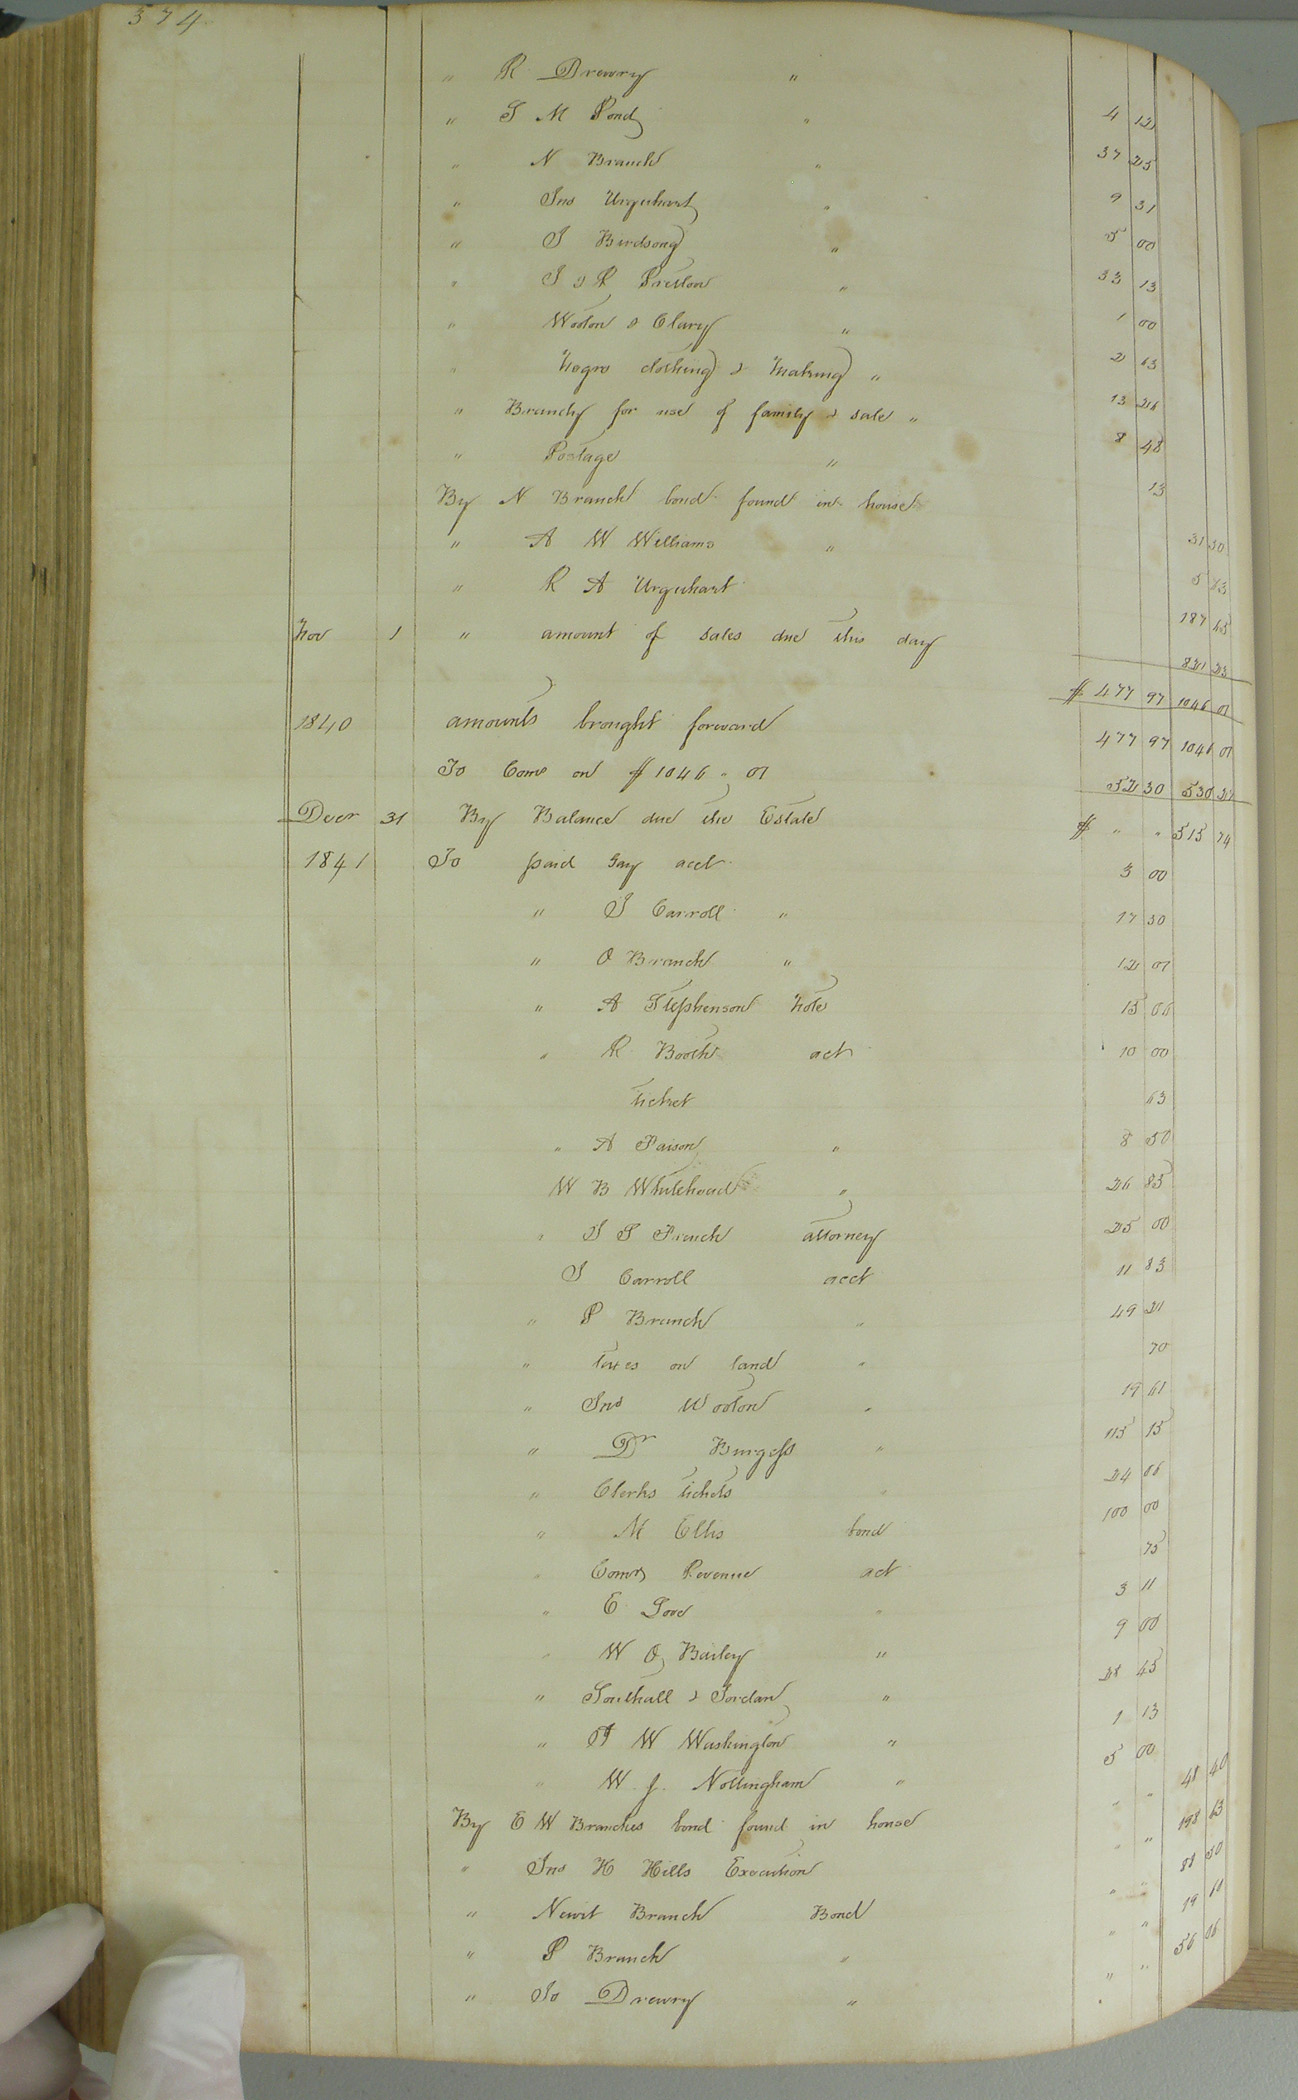 574
" R Drewry "  4 12
" S M Pond "  37 25
" N Branch "  9 31
" Jno Urquhart "  5 00
" J Birdsong "  33 13
" J & R Pretlow "  1 00
" Wooton & Clary "  2 63
" Negro clothing & making "  13 26
" Brandy for use of family & sale "  8 48
" Postage "  13
By N Branch bond found in house  31 50
" A W Williams "  5 13
" R A Urquhart  187 65
Nov 1 " amount of sales due this day  821 23
$ 477 97 1046 01
1840 amounts brought forward  477 97 1046 01
To Coms on $ 1046 " 01  52 30 530 27
Decr 31 By Balance due the Estate  $ " " 515 74
1841 To paid Gay acct  3 00
" J Carroll "  17 50
" O Branch "  12 01
" A Stephenson Note  15 06
" R Booth act  10 00
ticket  63
" A Faison "  8 50
W B Whitehead "  26 85
" S S French attorney  25 00
J Carroll acct  11 83
" P Branch "  49 21
" taxes on land "  70
" Jno Wooton "  19 61
" Dr Burgess "  115 15
" Clerks tickets "  24 06
" M Ellis bond  100 00
" Comrs Revenue act  75
" E Good "  3 11
" W O Bailey "  9 00
" Southall & Jordan "  28 45
" A W Washington "  1 13
" W J Nottingham "  5 00
By E W Branches bond found in house  " " 48 40
" Jno H Hills Execution  " " 198 63
" Newit Branch Bond  " " 88 50
" P Branch "  " " 19 61
" To Drewry "  " " 56 06